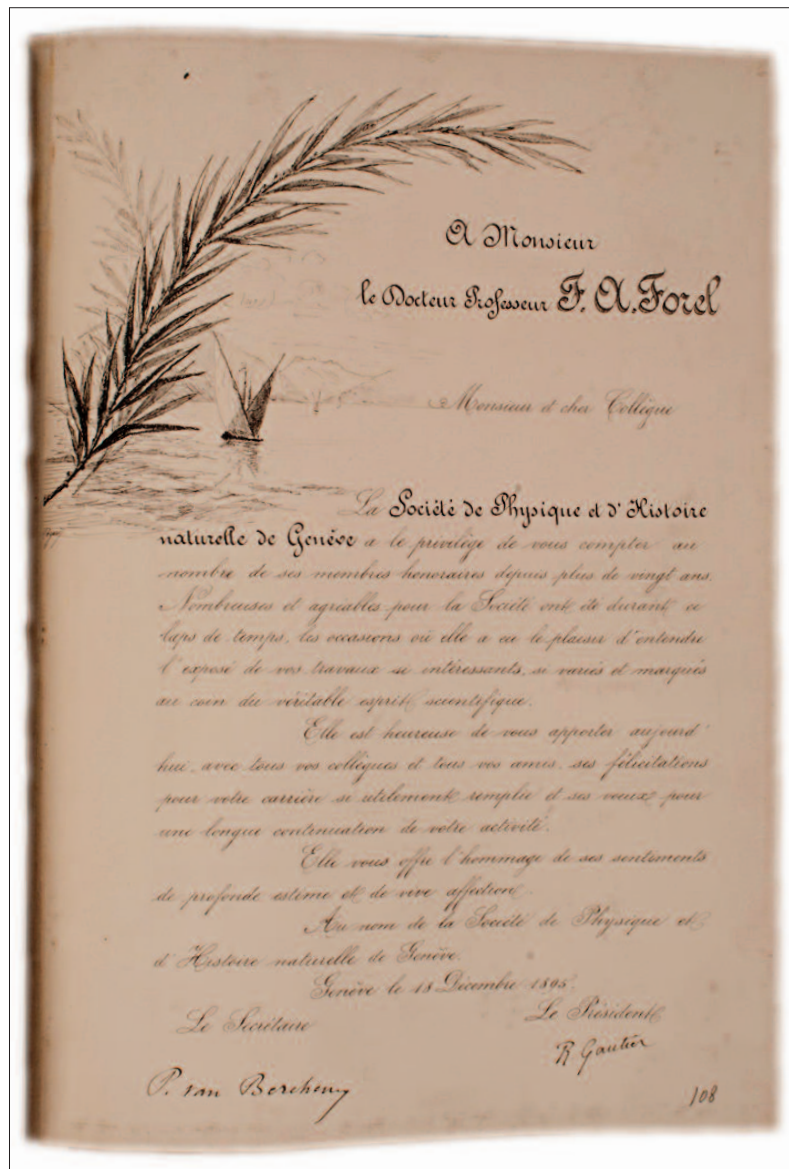 A Monsieur
le Docteur Professeur F. A. Forel
Monsieur et cher Collègue
La Société de Physique et d'Histoire
naturelle de Genève a le privilège de vous compter au
nombre de ses membres honoraires depuis plus de vingt ans.
Nombreuses et agréables pour la Société ont été durant ce
laps de temps, les occasions où elle a eu le plaisir d'entendre
l'exposé de vos travaux si intéressants, si variés et marqués
au coin du véritable esprit scientifique.
Elle est heureuse de vous apporter aujourd'
hui, avec tous vos collègues et tous vos amis, ses félicitations
pour votre carrière si utilement remplie et ses voeux pour
une longue continuation de votre activité.
Elle vous offre l'hommage de ses sentiments
de profonde estime et de vive affection.
Au nom de la Société de Physique et
d'Histoire naturelle de Genève.
Genève le 18 Décembre 1895.
Le Secrétaire Le Président
R Gautier
P. van Berchem
108